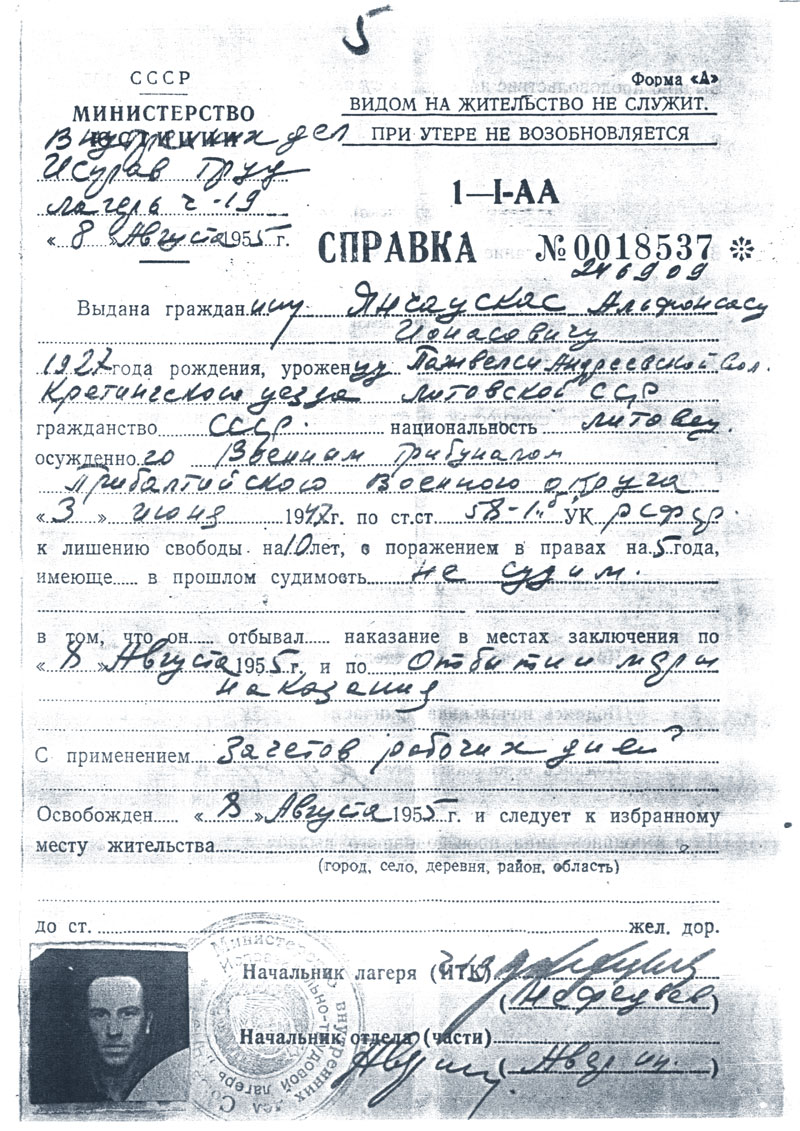 5
СССР
Форма «А»
МИНИСТЕРСТВО
ВИДОМ НА ЖИТЕЛЬСТВО НЕ СЛУЖИТ.
Внутренних дел
ПРИ УТЕРЕ НЕ ВОЗОБНОВЛЯЕТСЯ
Исправ Труд
лагерь ч-19
1—I-АА
« 8 » Августа 1955 г.
СПРАВКА №0018537
246909
Выдана гражданину Янчаускас Альфонсасу
Ионасовичу
1927 года рождения, уроженцу Андреевской вол.
Кретингского уезда Литовской ССР
гражданство СССР. национальность литовец.
осужденного Военным трибуналом
Прибалтийского Военного округа
« 3 » июня 1947 г. по ст.ст 58-1"б" УК РСФСР.
к лишению свободы на 10 лет, с поражением в правах на 5 года,
имеюще в прошлом судимость не судим.
в том, что он отбывал наказание в местах заключения по
« 8 » Августа 1955 г. и по Отбытии меры
наказания
С применением Зачетов рабочих дней
Освобожден « 8 » Августа 1955 г. и следует к избранному
месту жительства
(город, село, деревня, район, область)
до ст. жел. дор.
Начальник лагеря (ИТК)
(Нефедьев)
Начальник отдела (части)
Министерство внутренних дел
Исправительно-трудовой лагерь